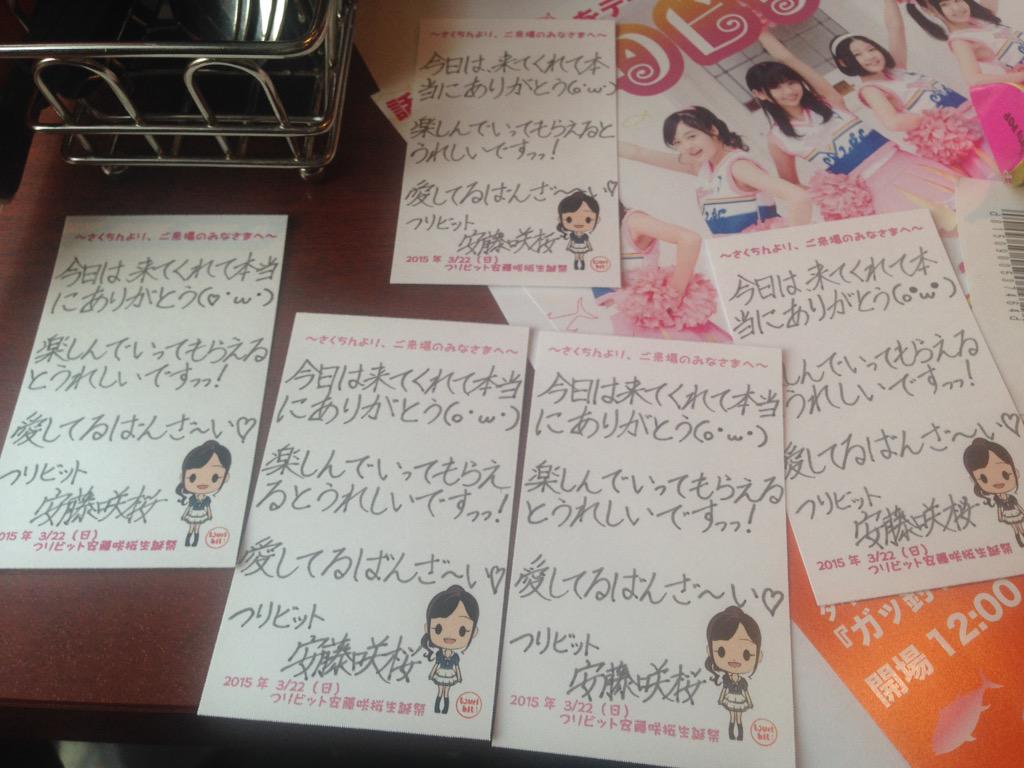 ～さくちんより、ご来場のみなさまへ～
今日は、来てくれて本
当にありがとう(o・ω・)
楽しんでいってもらえると
うれしいですっっ!
愛してるばんざ〜い♡
つりビット
安藤咲桜
2015年 3/22（日）
つりビット安藤咲桜生誕祭
～さくちんより、ご来場のみなさまへ～
今日は、来てくれて本当
にありがとう(♡・ω・)
楽しんでいってもらえる
とうれしいですっっ!
愛してるばんざ〜い♡
つりビット
安藤咲桜
015年 3/22（日）
つりビット安藤咲桜生誕祭
つuri
bit!
～さくちんより、ご来場のみなさまへ～
今日は来てくれて本当
にありがとう(o・ω・)
楽しんでいってもらえ
るとうれしいですっっ!
愛してるばんざ〜い♡
つりビット
安藤咲桜
2015年 3/22（日）
つりビット安藤咲桜生誕祭
つuri
bit!
～さくちんより、ご来場のみなさまへ～
今日は来てくれて本当
にありがとう(o・ω・)
楽しんでいってもらえる
とうれしいですっっ!
愛してるばんざ〜い♡
つりビット
安藤咲桜
2015年 3/22（日）
つりビット安藤咲桜生誕祭
つuri
bit!
～さくちんより、ご来場のみなさまへ～
今日は、来てくれて本
当にありがとう(o・ω・)
しんでいってもらえると
うれしいですっっ!
愛してるばんざ〜い
つりビット
安藤咲桜
2015年 3/22（日）
つりビット安藤咲桜生誕祭
開場 12:00